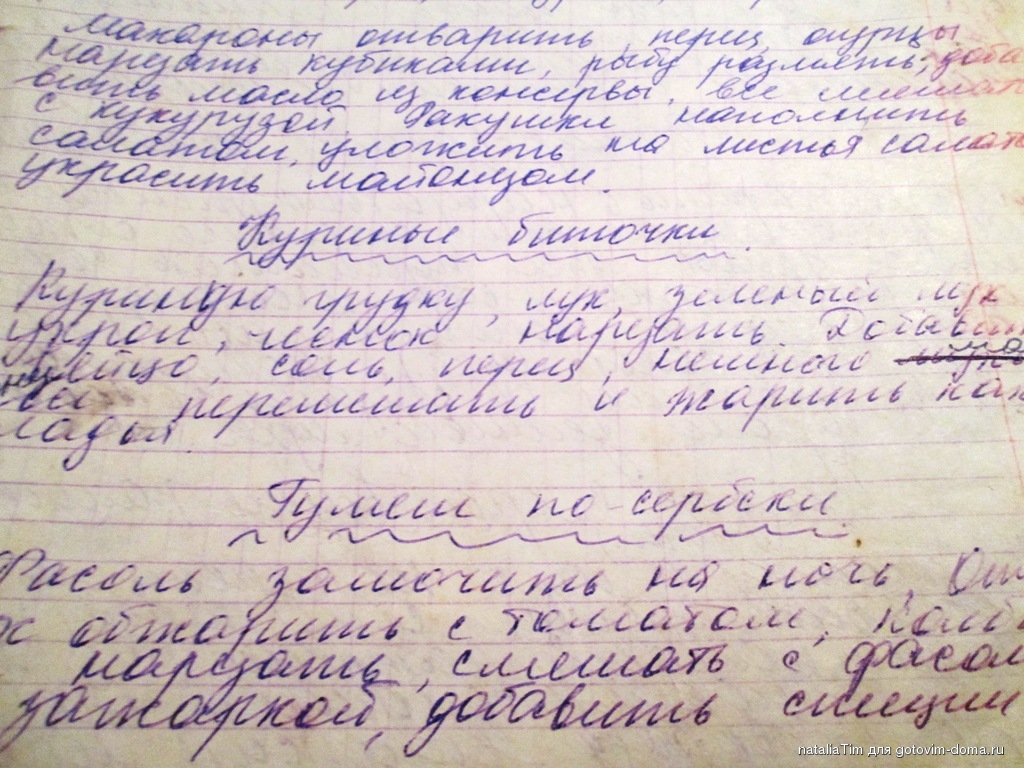 Макароны отварить, перец, огурцы
нарезать кубиками, рыбу размять, доба
вить масло из консервы, все смешат
с кукурузой. Ракушки наполнить
салатом, уложить на листья салат
украсить майонезом.
Куриные биточки.
Куриную грудку, лук, зеленый лук
укроп, чеснок нарезать. Добавит
яйцо, соль, перец, немного
все перемешать и жарить как
ладьи.
Гумеш по-сербски.
Фасоль замочить на ночь, От
обжарить с томатом, Колб
нарезать, смешать с фасол
зажаркой, добавить специи
nataliaTim для gotovim-doma.ru